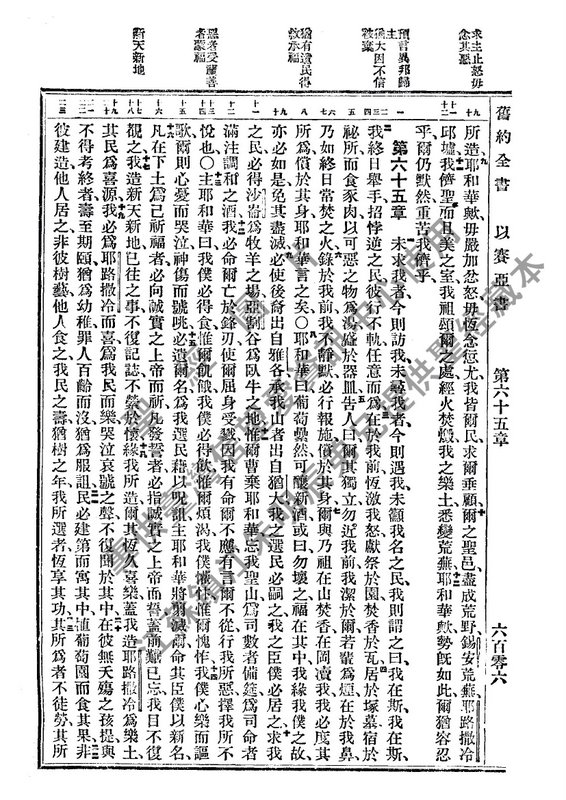 求主止怒毋
念其愆
預言異邦歸
主
猶大因不信
被棄
猶有遺民得
救承福
惡者受禍善
者蒙福
新天新地
舊約全書 以賽亞書 第六十五章 六百零六
所造耶和華歟毋嚴加忿怒毋恆念愆尤我皆爾民求爾垂顧爾之聖邑盡成荒野錫安荒蕪耶路撒冷
邱墟我儕聖而且美之室我祖頌爾之處經火焚燬我之樂土悉變荒蕪耶和華歟勢既如此爾猶容忍
乎爾仍默然重苦我儕乎
第六十五章 未求我者今則訪我未尋我者今則遇我未籲我名之民我則謂之曰我在斯我在斯
我終日舉手招悖逆之民彼行不軌任意而爲在於我前恆激我怒獻祭於園焚香於瓦居於塚墓宿於
祕所而食豕肉以可惡之物爲湯盛於器皿告人曰爾其獨立勿近我前我潔於爾若輩爲煙在於我鼻
乃如終日常焚之火錄於我前我不靜默必行報施償於其身爾與乃祖在山焚香在岡瀆我我必度其
所爲償於其身耶和華言之矣〇耶和華曰葡萄纍然可釀新酒或曰勿壞之福在其中我緣我僕之故
亦必如是免其盡滅必使後裔出自雅各承我山者出自猶大我之選民必嗣之我之臣僕必居之求我
之民必得沙崙爲牧羊之場亞割谷爲臥牛之地惟爾曹棄耶和華忘我聖山爲司數者備筵爲司命者
滿注調和之酒我必命爾亡於鋒刃使爾屈身受戮因我有命爾不應有言爾不從行我所惡擇我所不
悅也〇主耶和華曰我僕必得食惟爾飢餓我僕必得飲惟爾煩渴我僕懽忭惟爾愧怍我僕心樂而謳
歌爾則心憂而哭泣神傷而號咷必遺爾名爲我選民藉以呪詛主耶和華將翦滅爾命其臣僕以新名
凡在下土爲己祈福者必向誠實之上帝而祈凡發誓者必指誠實之上帝而誓蓋前艱已忘我目不復
覩之我造新天新地已往之事不復記誌不縈於懷緣我所造爾其恆久喜樂蓋我造耶路撒冷爲樂土
其民爲喜源我必爲耶路撒冷而喜爲我民而樂哭泣哀號之聲不復聞於其中在彼無夭殤之孩提與
不得考終者壽至期頤猶爲幼稚罪人百齡而沒猶爲服詛民必建第而寓其中植葡萄園而食其果非
彼建造他人居之非彼樹藝他人食之我民之壽猶樹之年我所選者恆享其功其所爲者不徒勞其所